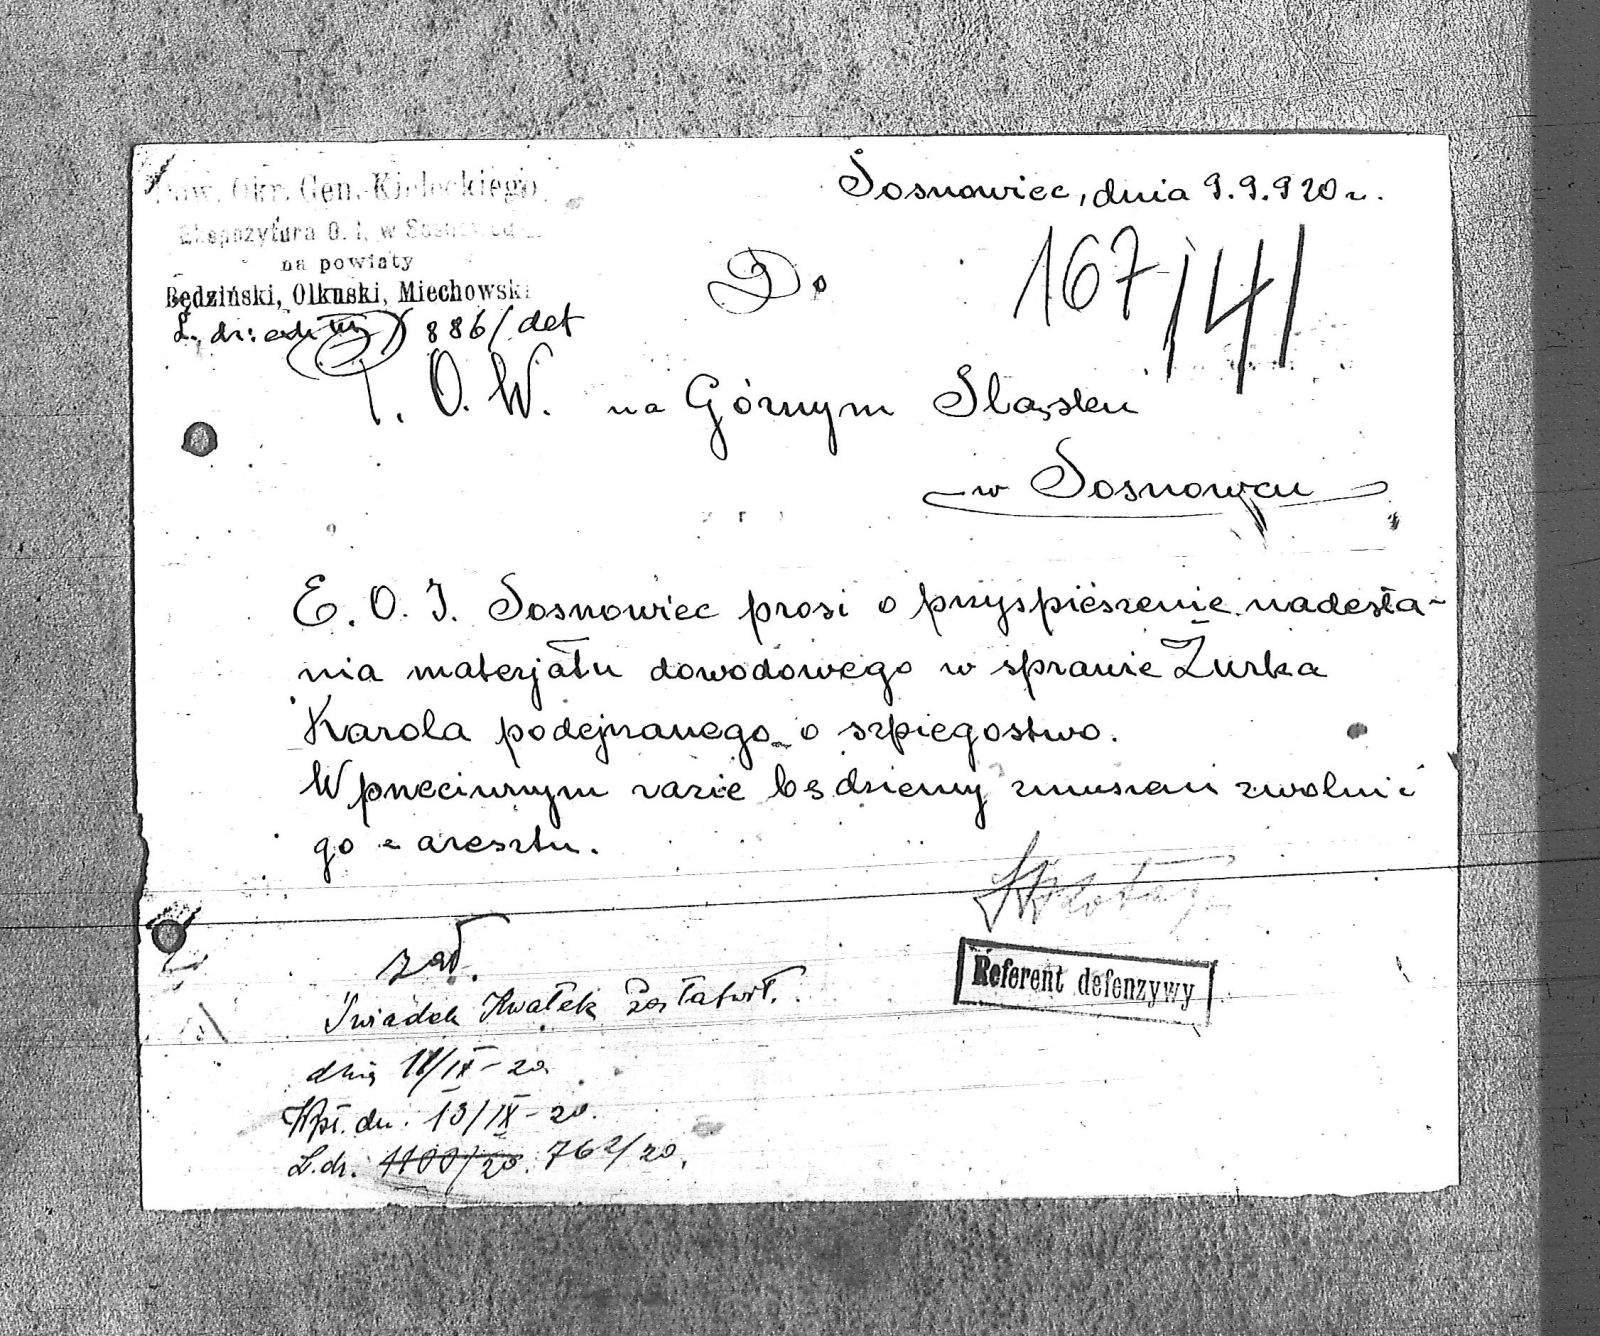 Dow. Okr. Gen. Kieleckiego
Ekspozytura O. I. w Sosnowcu
na powiaty
Będziński, Olkuski, Miechowski
L. dz: 886/def
Sosnowiec, dnia 9.9.920 r.
167/41
Do
P. O. W. na Górnym Śląsku
w Sosnowcu
E. O. I. Sosnowiec prosi o przyspieszenie nadesła-
nia materjału dowodowego w sprawie Żurka
Karola podejrzanego o szpiegostwo.
W przeciwnym razie będziemy zmuszeni zwolnić
go z aresztu.
Referent defenzywy
zał.
Świadek Kwałek
dnia 11/IX-20
Wpł. dn. 13/IX-20.
L.dz. 1100/20. 762/20.